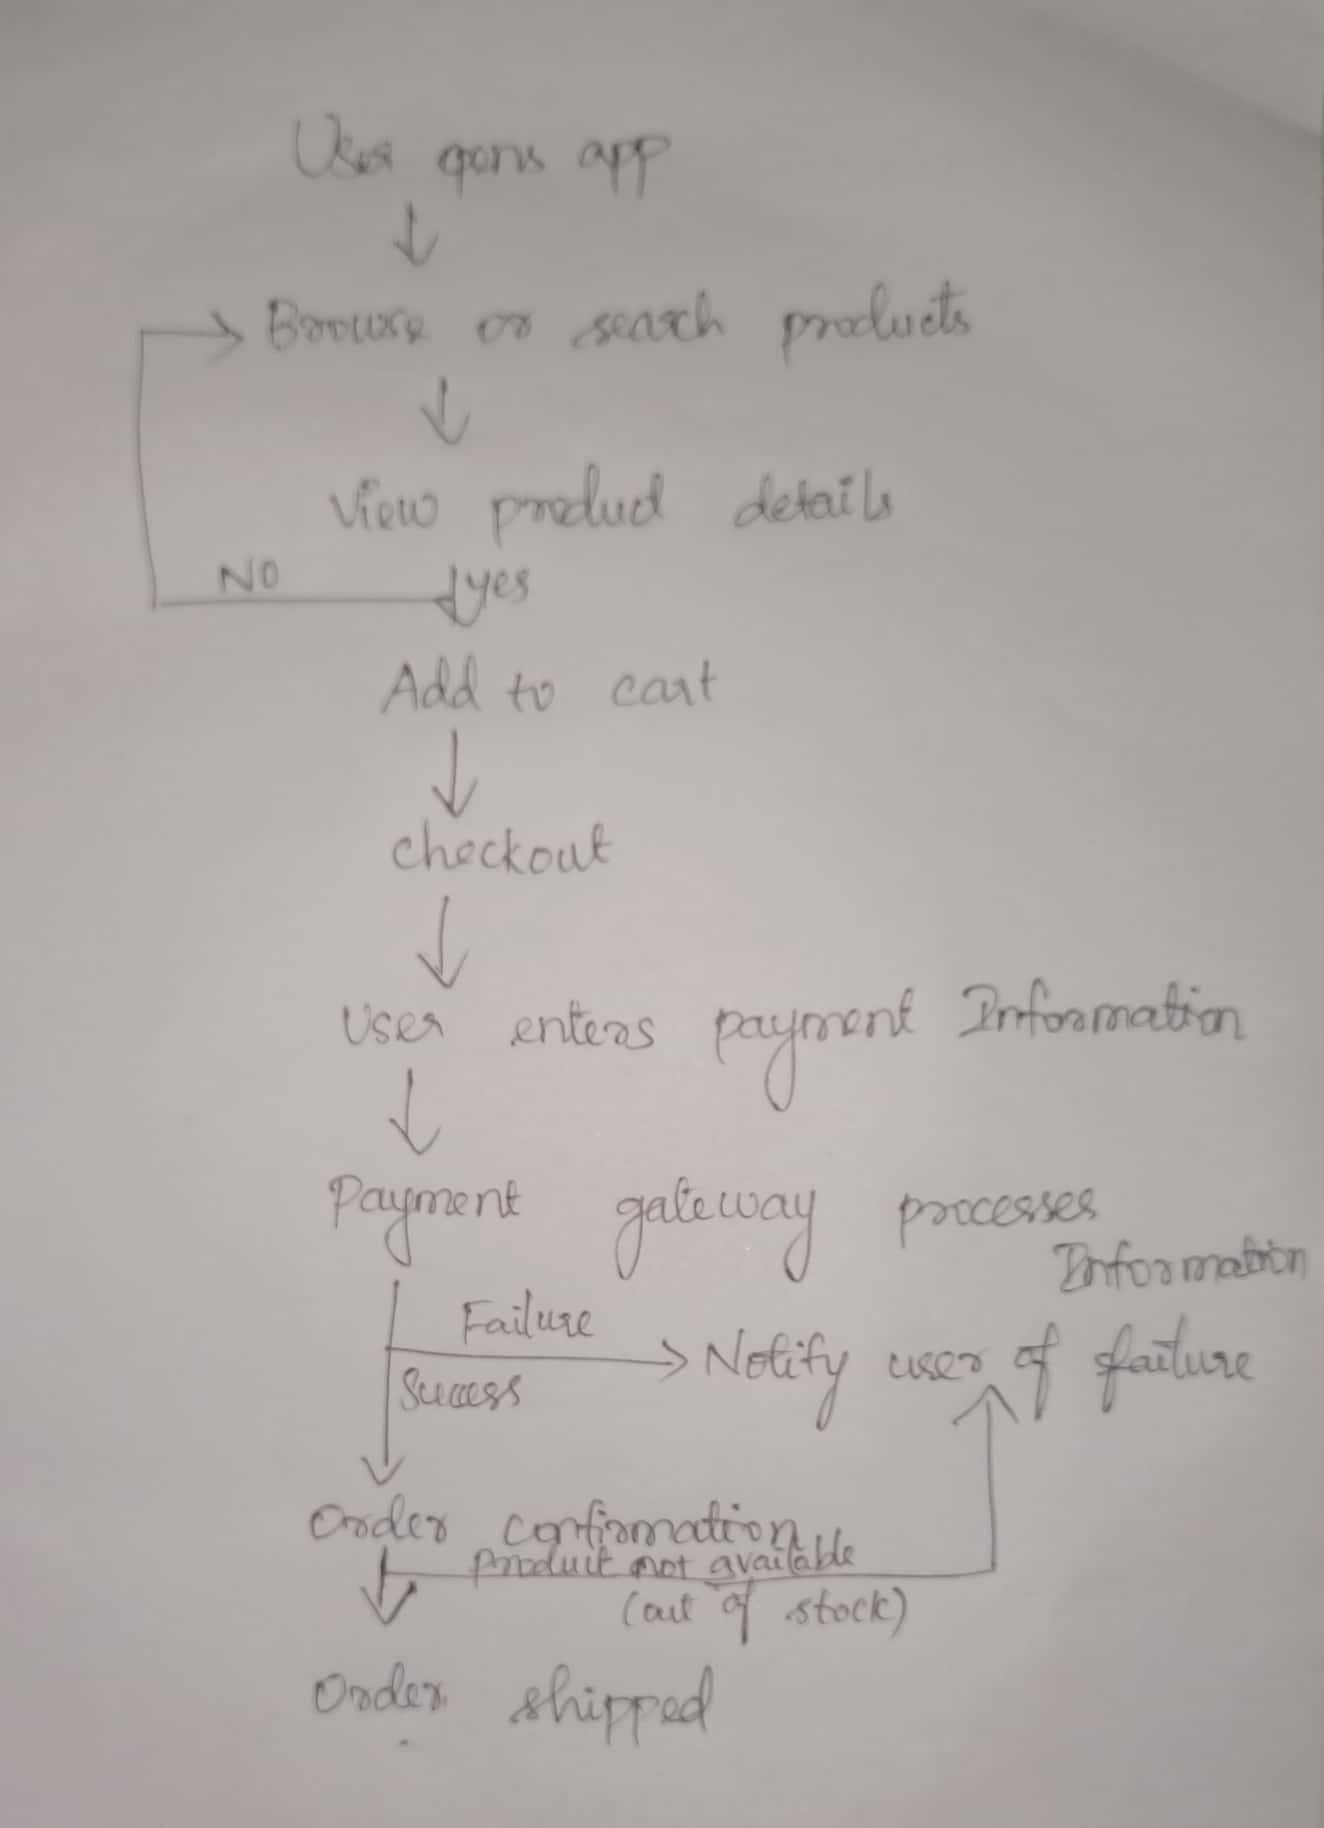 User opens app
Browse or search products
View product details
NO yes
Add to cart
checkout
User enters payment Information
Payment gateway processes
Information
Failure
Notify user of failure
Success
Order confirmation
Product not available
(out of stock)
Order shipped